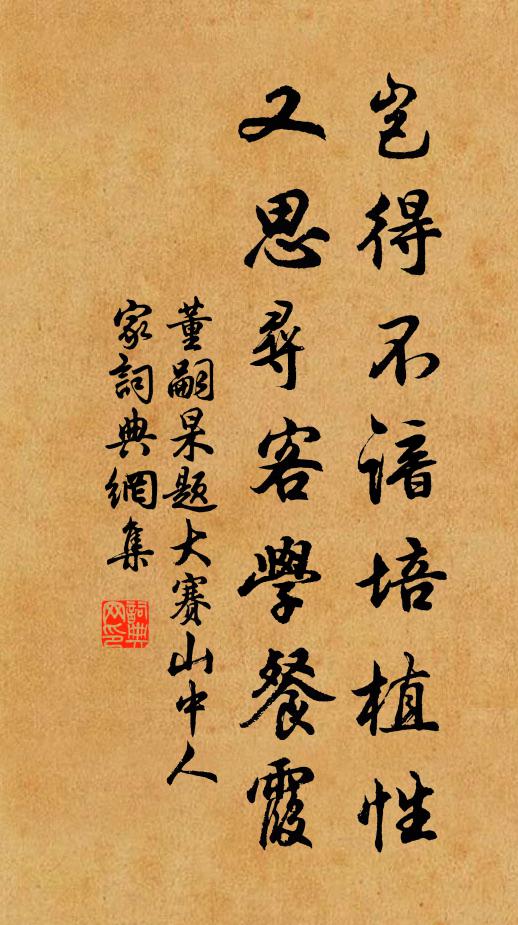 豈得不諳培植性
又思尋客學餐霞
董嗣杲题大赛山中人
家詞典網集
詞典网印